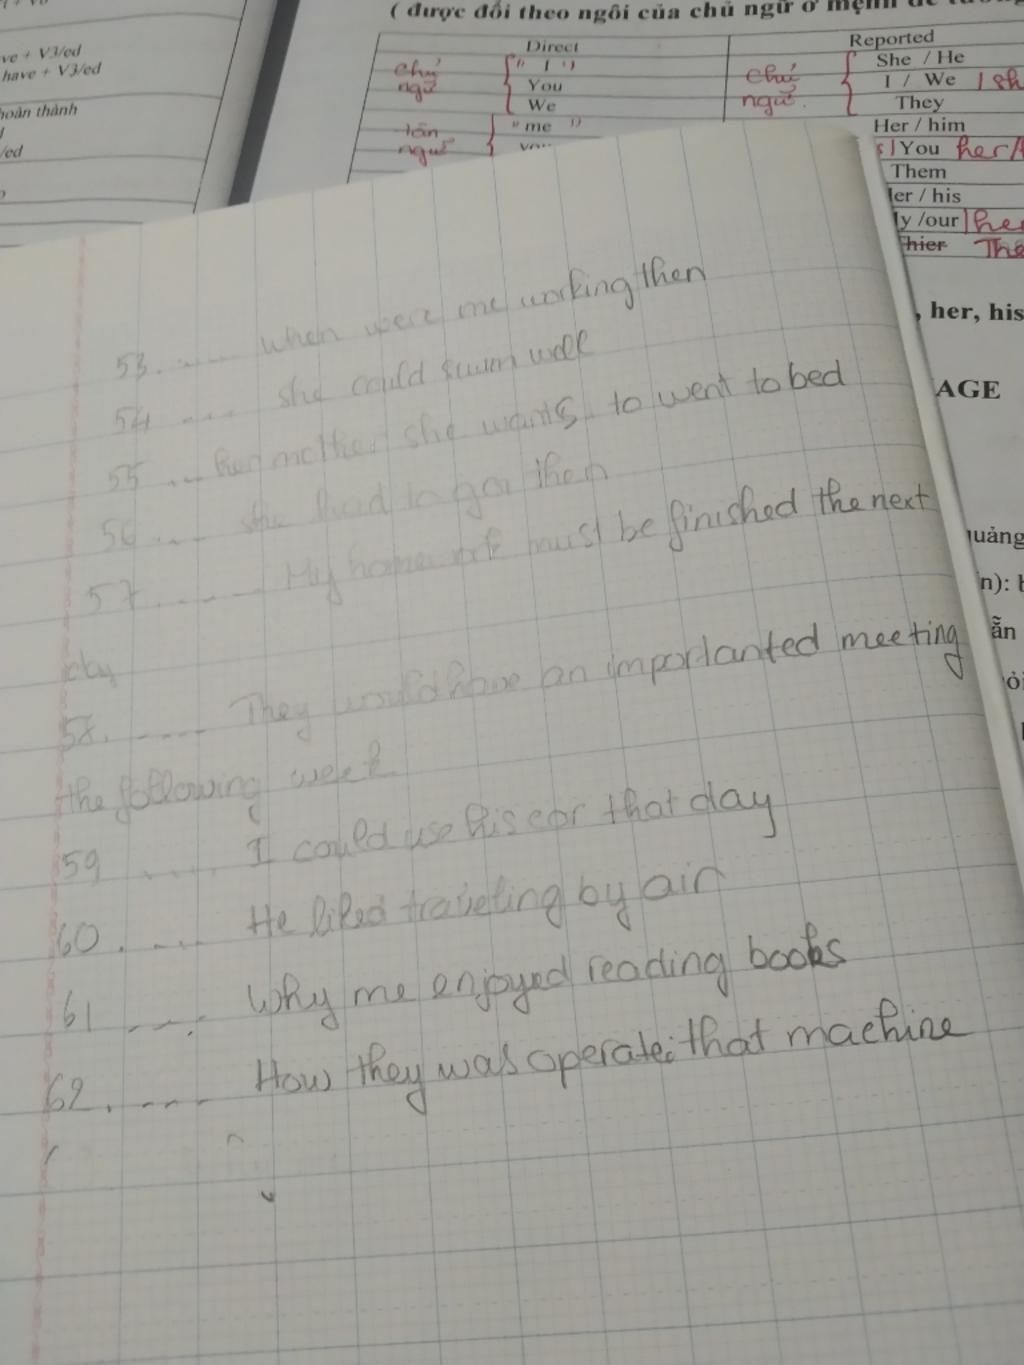 ( được đổi theo ngôi của chủ ngữ ở mệnh đề
ve + V3/ed
have + V3/ed
hoàn thành
/ed
Direct
Reported
chủ ngữ
" I "
You
We
chủ ngữ.
She / He
I / We
They
tân ngữ
" me "
Her / him
You her/
Them
her / his
y /our
hier The
, her, his
AGE
53. .... When were me working then
54 .... she could swim well
55 ... her mother she wants to went to bed
56 .... she had to go then
57 ...... My homework must be finished the next
day
58. ..... They would have an importanted meeting
the following week
59 ..... I could use his car that day
60 . ... He liked traveling by air
61 .... Why me enjoyed reading books
62 . .... How they was operate: that machine